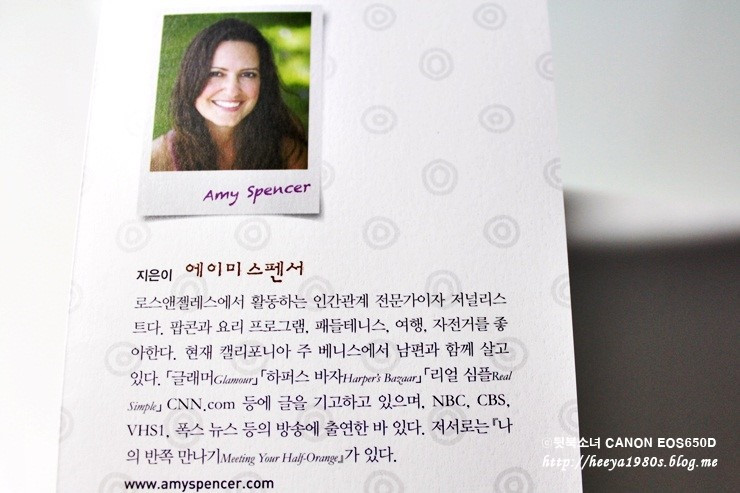 Amy Spencer
지은이 에이미 스펜서
로스앤젤레스에서 활동하는 인간관계 전문가이자 저널리스
트다. 팝콘과 요리 프로그램, 패들테니스, 여행, 자전거를 좋
아한다. 현재 캘리포니아 주 베니스에서 남편과 함께 살고
있다. 「글래머Glamour」「하퍼스 바자Harper's Bazaar」「리얼 심플Real
Simple」 CNN.com 등에 글을 기고하고 있으며, NBC, CBS,
VHS1, 폭스 뉴스 등의 방송에 출연한 바 있다. 저서로는 『나
의 반쪽 만나기Meeting Your Half-Orange』가 있다.
www.amyspencer.com
ⓒ뒷북소녀 CANON EOS650D
http://heeya1980s.blog.me